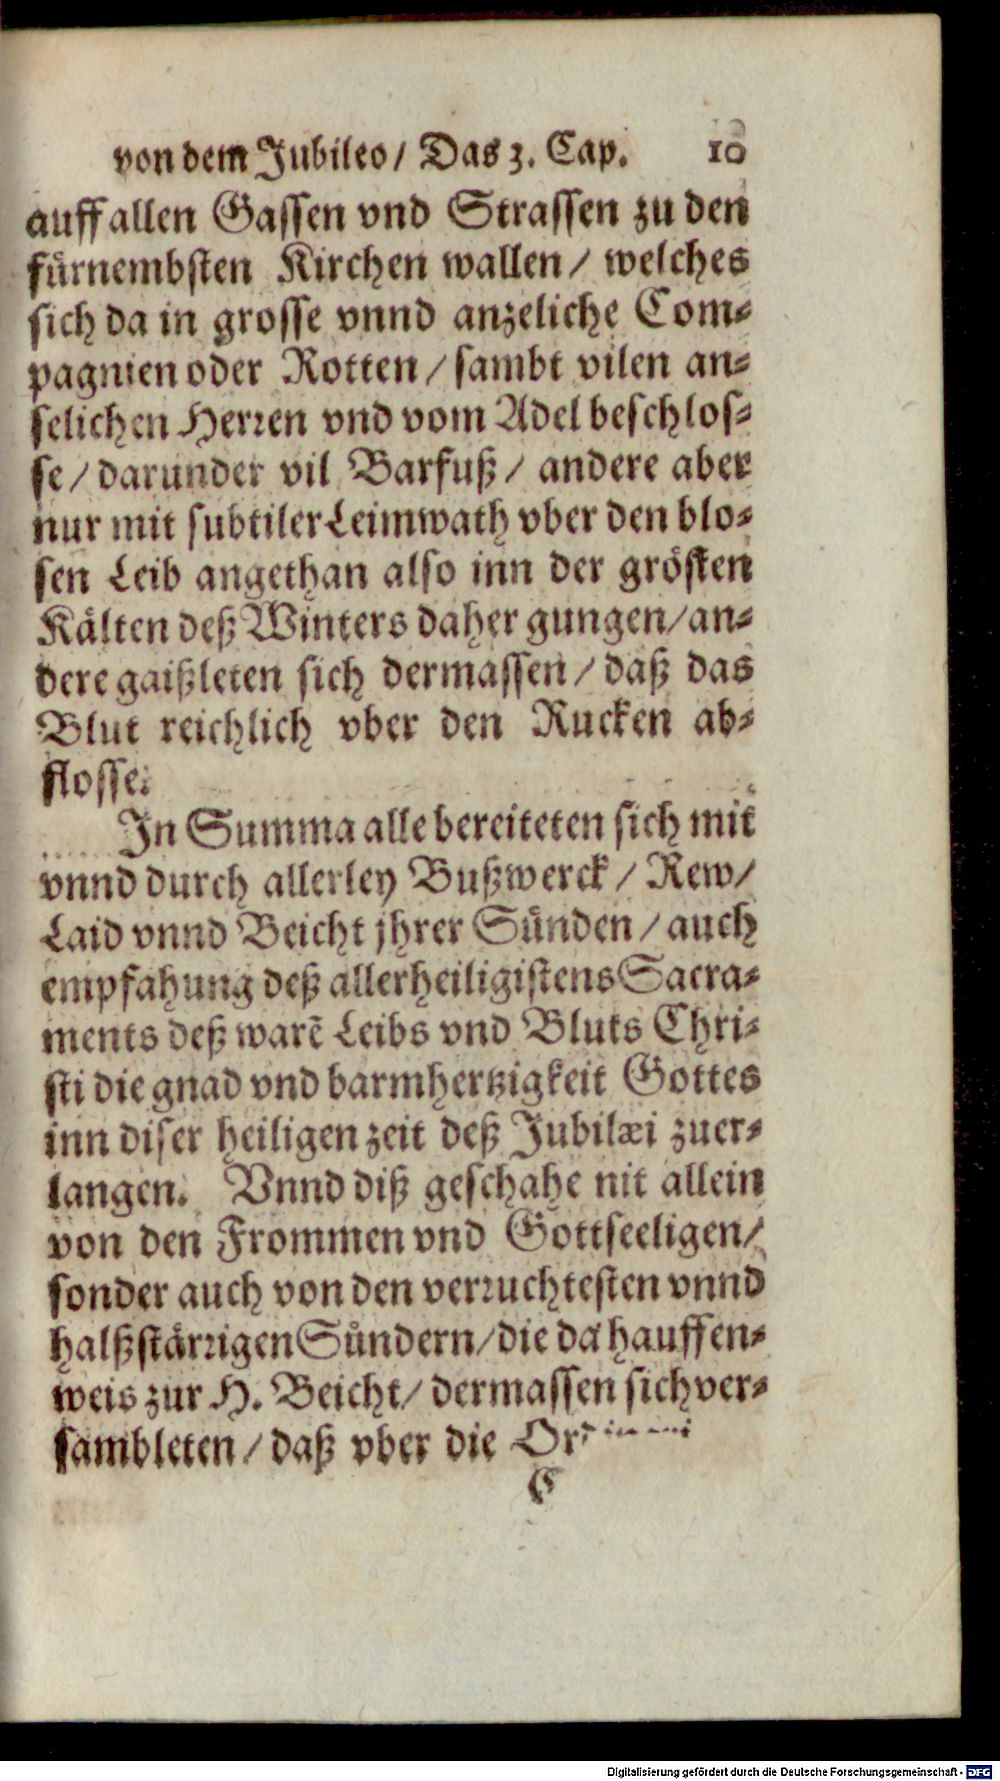 von dem Jubileo / Das 3. Cap. 10
auff allen Gassen vnd Strassen zu den
fürnembsten Kirchen wallen / welches
sich da in grosse vnnd anzeliche Com-
pagnien oder Rotten / sambt vilen an-
selichen Herren vnd vom Adel beschlos-
se / darunder vil Barfuß / andere aber
nur mit subtiler Leimwath vber den blo-
sen Leib angethan also inn der grösten
Kälten deß Winters daher gungen / an-
dere gaißleten sich dermassen / daß das
Blut reichlich vber den Rucken ab-
flosse.
In Summa alle bereiteten sich mit
vnnd durch allerley Bußwerck / Rew /
Laid vnnd Beicht jhrer Sünden / auch
empfahung deß allerheiligistens Sacra-
ments deß warẽ Leibs vnd Bluts Chri-
sti die gnad vnd barmhertzigkeit Gottes
inn diser heiligen zeit deß Jubilæi zuer-
langen. Vnnd diß geschahe nit allein
von den Frommen vnd Gottseeligen /
sonder auch von den verruchtesten vnnd
halßstärrigen Sündern / die da hauffen-
weis zur H. Beicht / dermassen sich ver-
sambleten / daß vber die
C
Digitalisierung gefördert durch die Deutsche Forschungsgemeinschaft - DFG